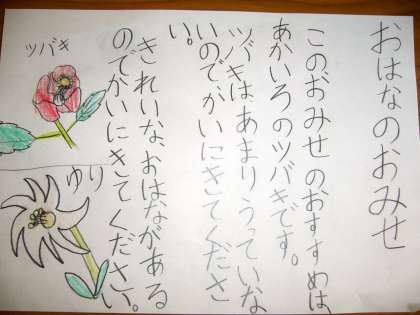 おはなのおみせ
このおみせのおすすめは、
あかいろのツバキです。
ツバキはあまりうっていな
いのでかいにきてくださ
い。
きれいな、おはながある
のでかいにきてください。
ツバキ
ゆり